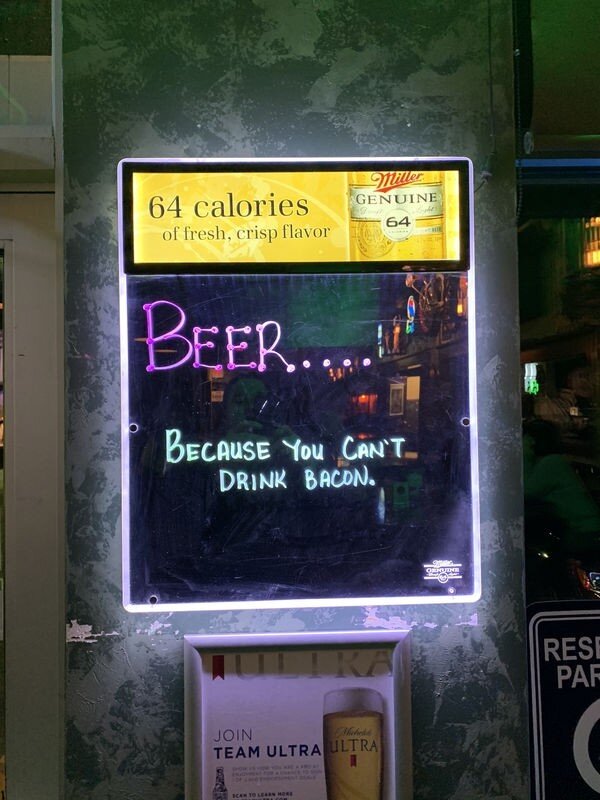 64 calories
of fresh, crisp flavor
Miller
GENUINE
64
BEER.....
BECAUSE YOU CAN'T
DRINK BACON.
Miller
GENUINE
ULTRA
JOIN
TEAM ULTRA
SCAN TO LEARN MORE
Michelob
ULTRA
RESE
PAR